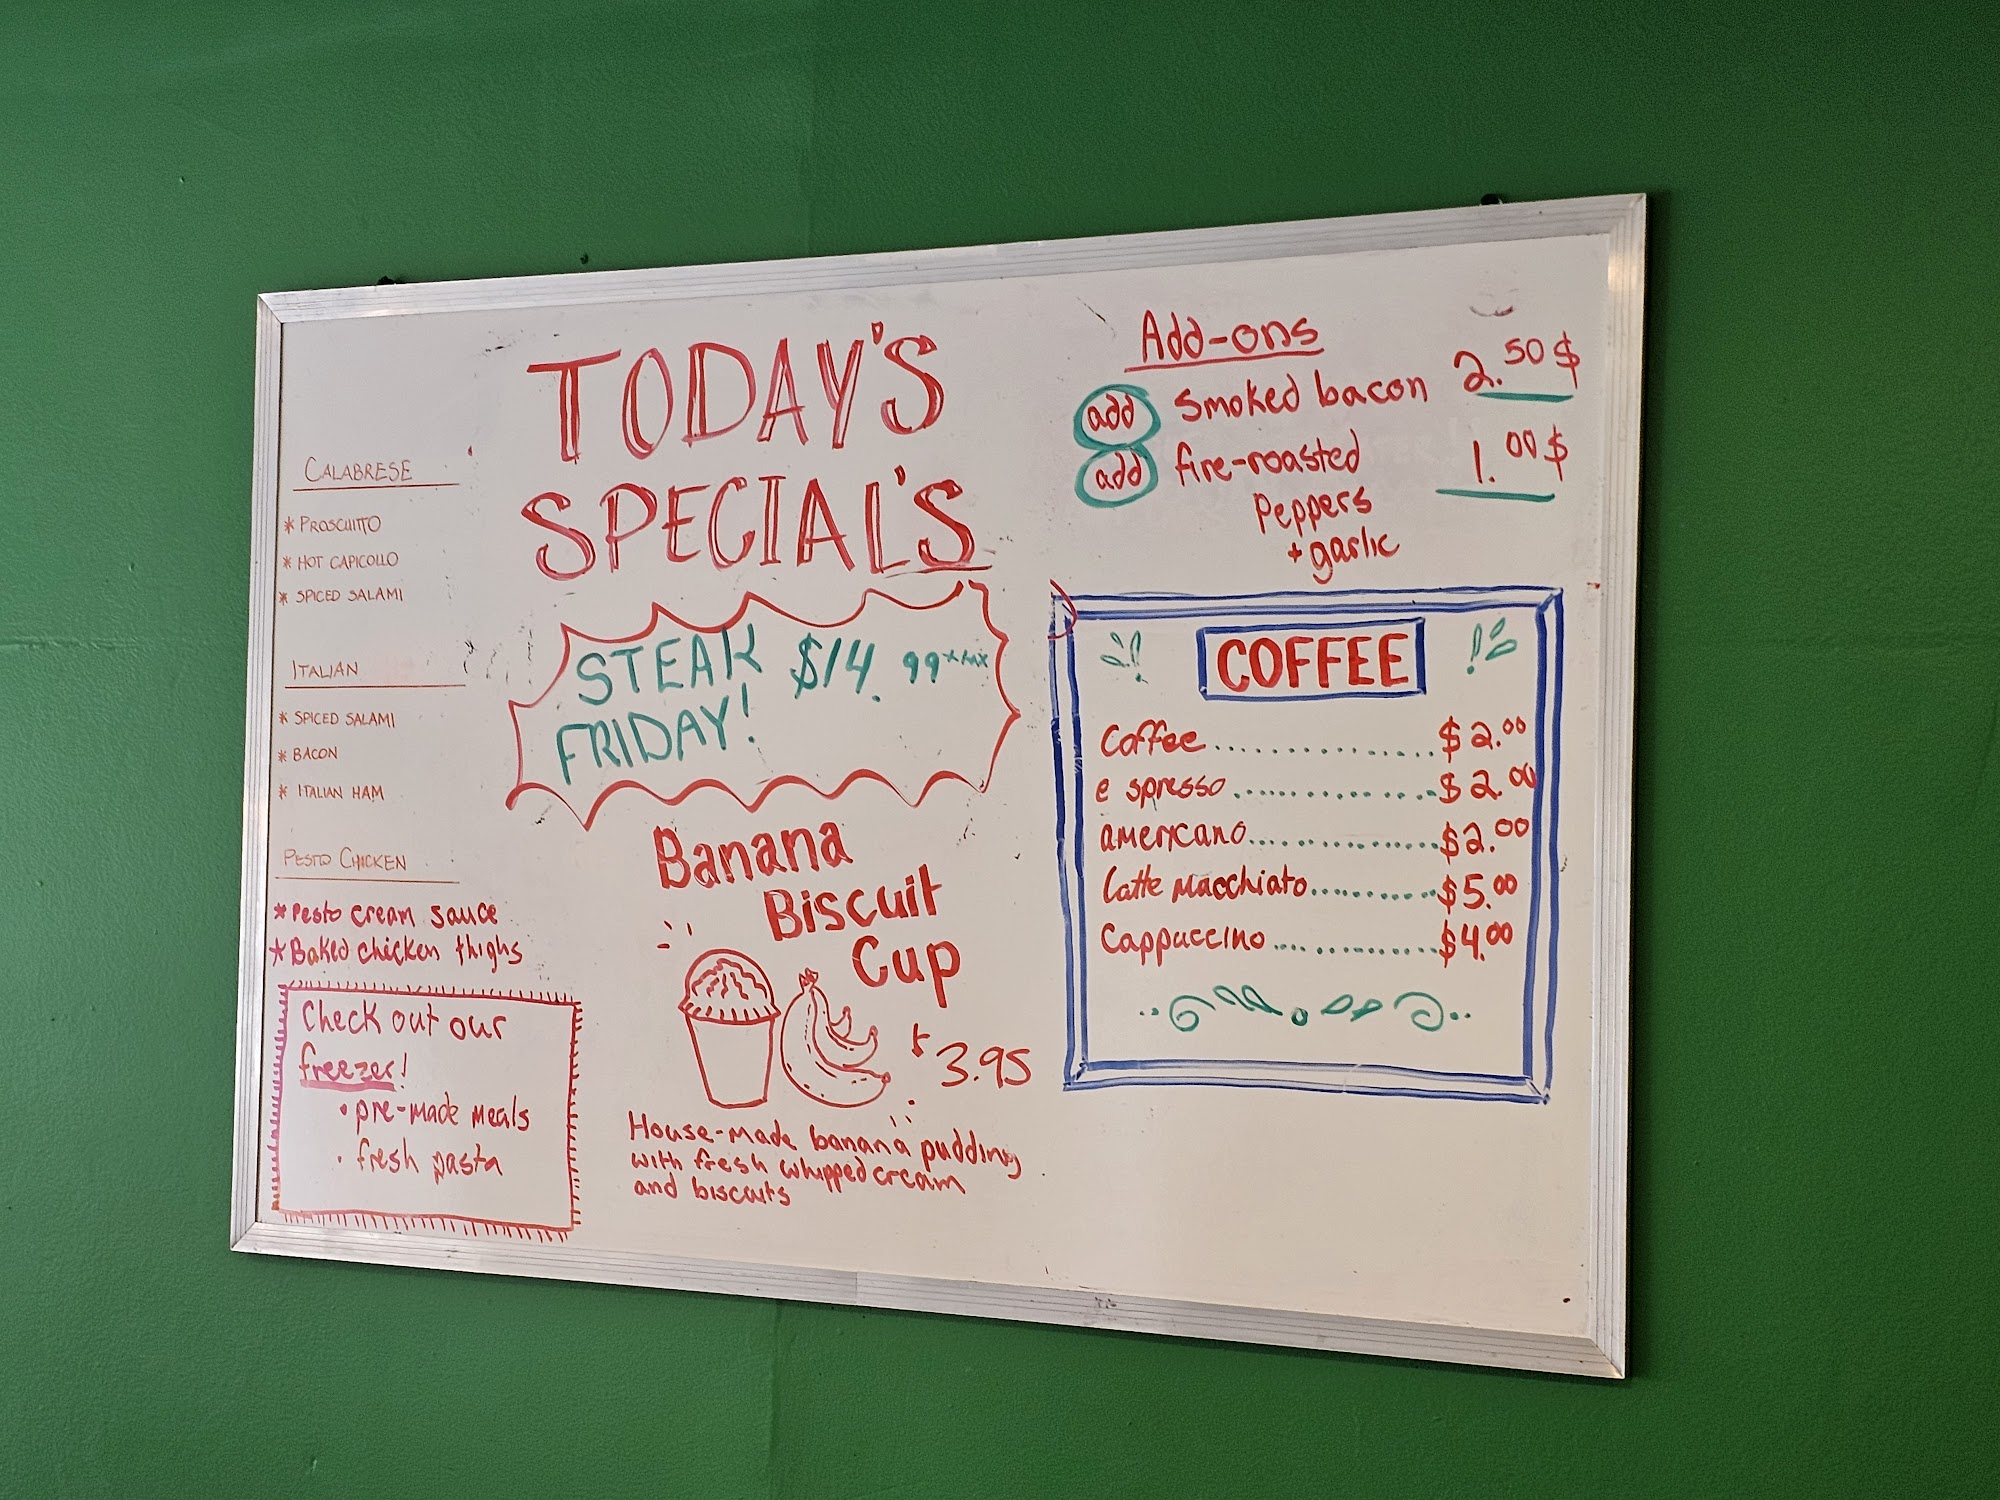 TODAY'S
SPECIAL'S
STEAK $14.99+tax
FRIDAY!
Banana
Biscuit
Cup
$3.95
House-made banana pudding
with fresh whipped cream
and biscuits
CALABRESE
* PROSCUITTO
* HOT CAPICOLLO
* SPICED SALAMI
ITALIAN
* SPICED SALAMI
* BACON
* ITALIAN HAM
PESTO CHICKEN
* Pesto cream sauce
* Baked chicken thighs
Check out our
freezer!
• pre-made meals
• fresh pasta
Add-ons
add smoked bacon 2.50$
add fire-roasted 1.00$
Peppers
+ garlic
COFFEE
Coffee................$2.00
e spresso................$2.00
americano................$2.00
Latte Macchiato..........$5.00
Cappuccino...............$4.00